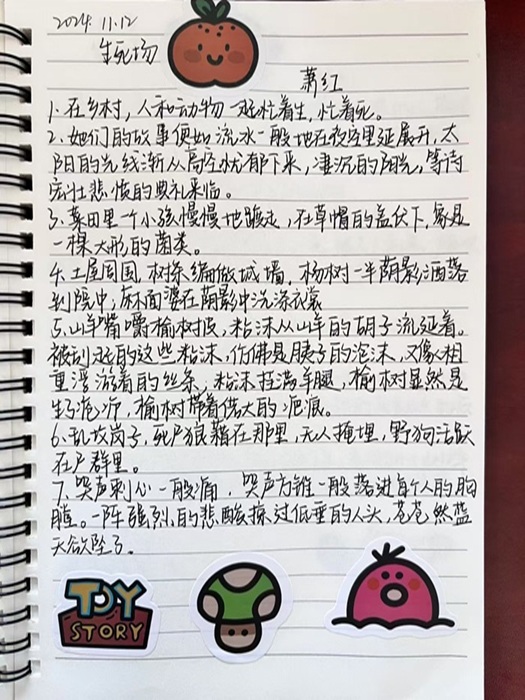 2024.11.12
生死场
萧红
1.在乡村，人和动物一起忙着生，忙着死。
2.她们的故事便如流水一般地在夜空里延展开，太
阳的光线渐从高空忧郁下来，凄沉的阳光，等待
宏壮悲愤的典礼来临。
3.菜田里一个小孩慢慢地踱走，在草帽的盖伏下，象是
一棵大形的菌类。
4.土屋周围，树条编做城墙，杨树一半阴影洒落
到院中，麻面婆在阴影中洗涤衣裳
5.山羊嘴嚼榆树皮，粘沫从山羊的胡子流延着。
被刮起的这些粘沫，仿佛是胰子的泡沫，又像粗
重浮游着的丝条，粘沫挂满羊腿，榆树显然是
生了疮疖，榆树带着偌大的疤痕。
6.乱坟岗子，死尸狼藉在那里，无人掩埋，野狗活跃
在尸群里。
7.哭声刺心一般痛，哭声方锥一般落进每个人的胸
膛。一阵强烈的悲酸掠过低垂的人头，苍苍然蓝
天欲坠了。
TOY
STORY